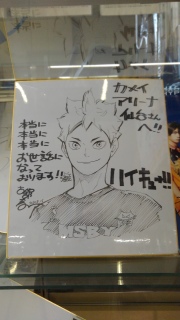 カメイ
アリーナ
仙台さん
へ!!
本当に
本当に
本当に
お世話に
なって
おります!!
ハイキュー!!